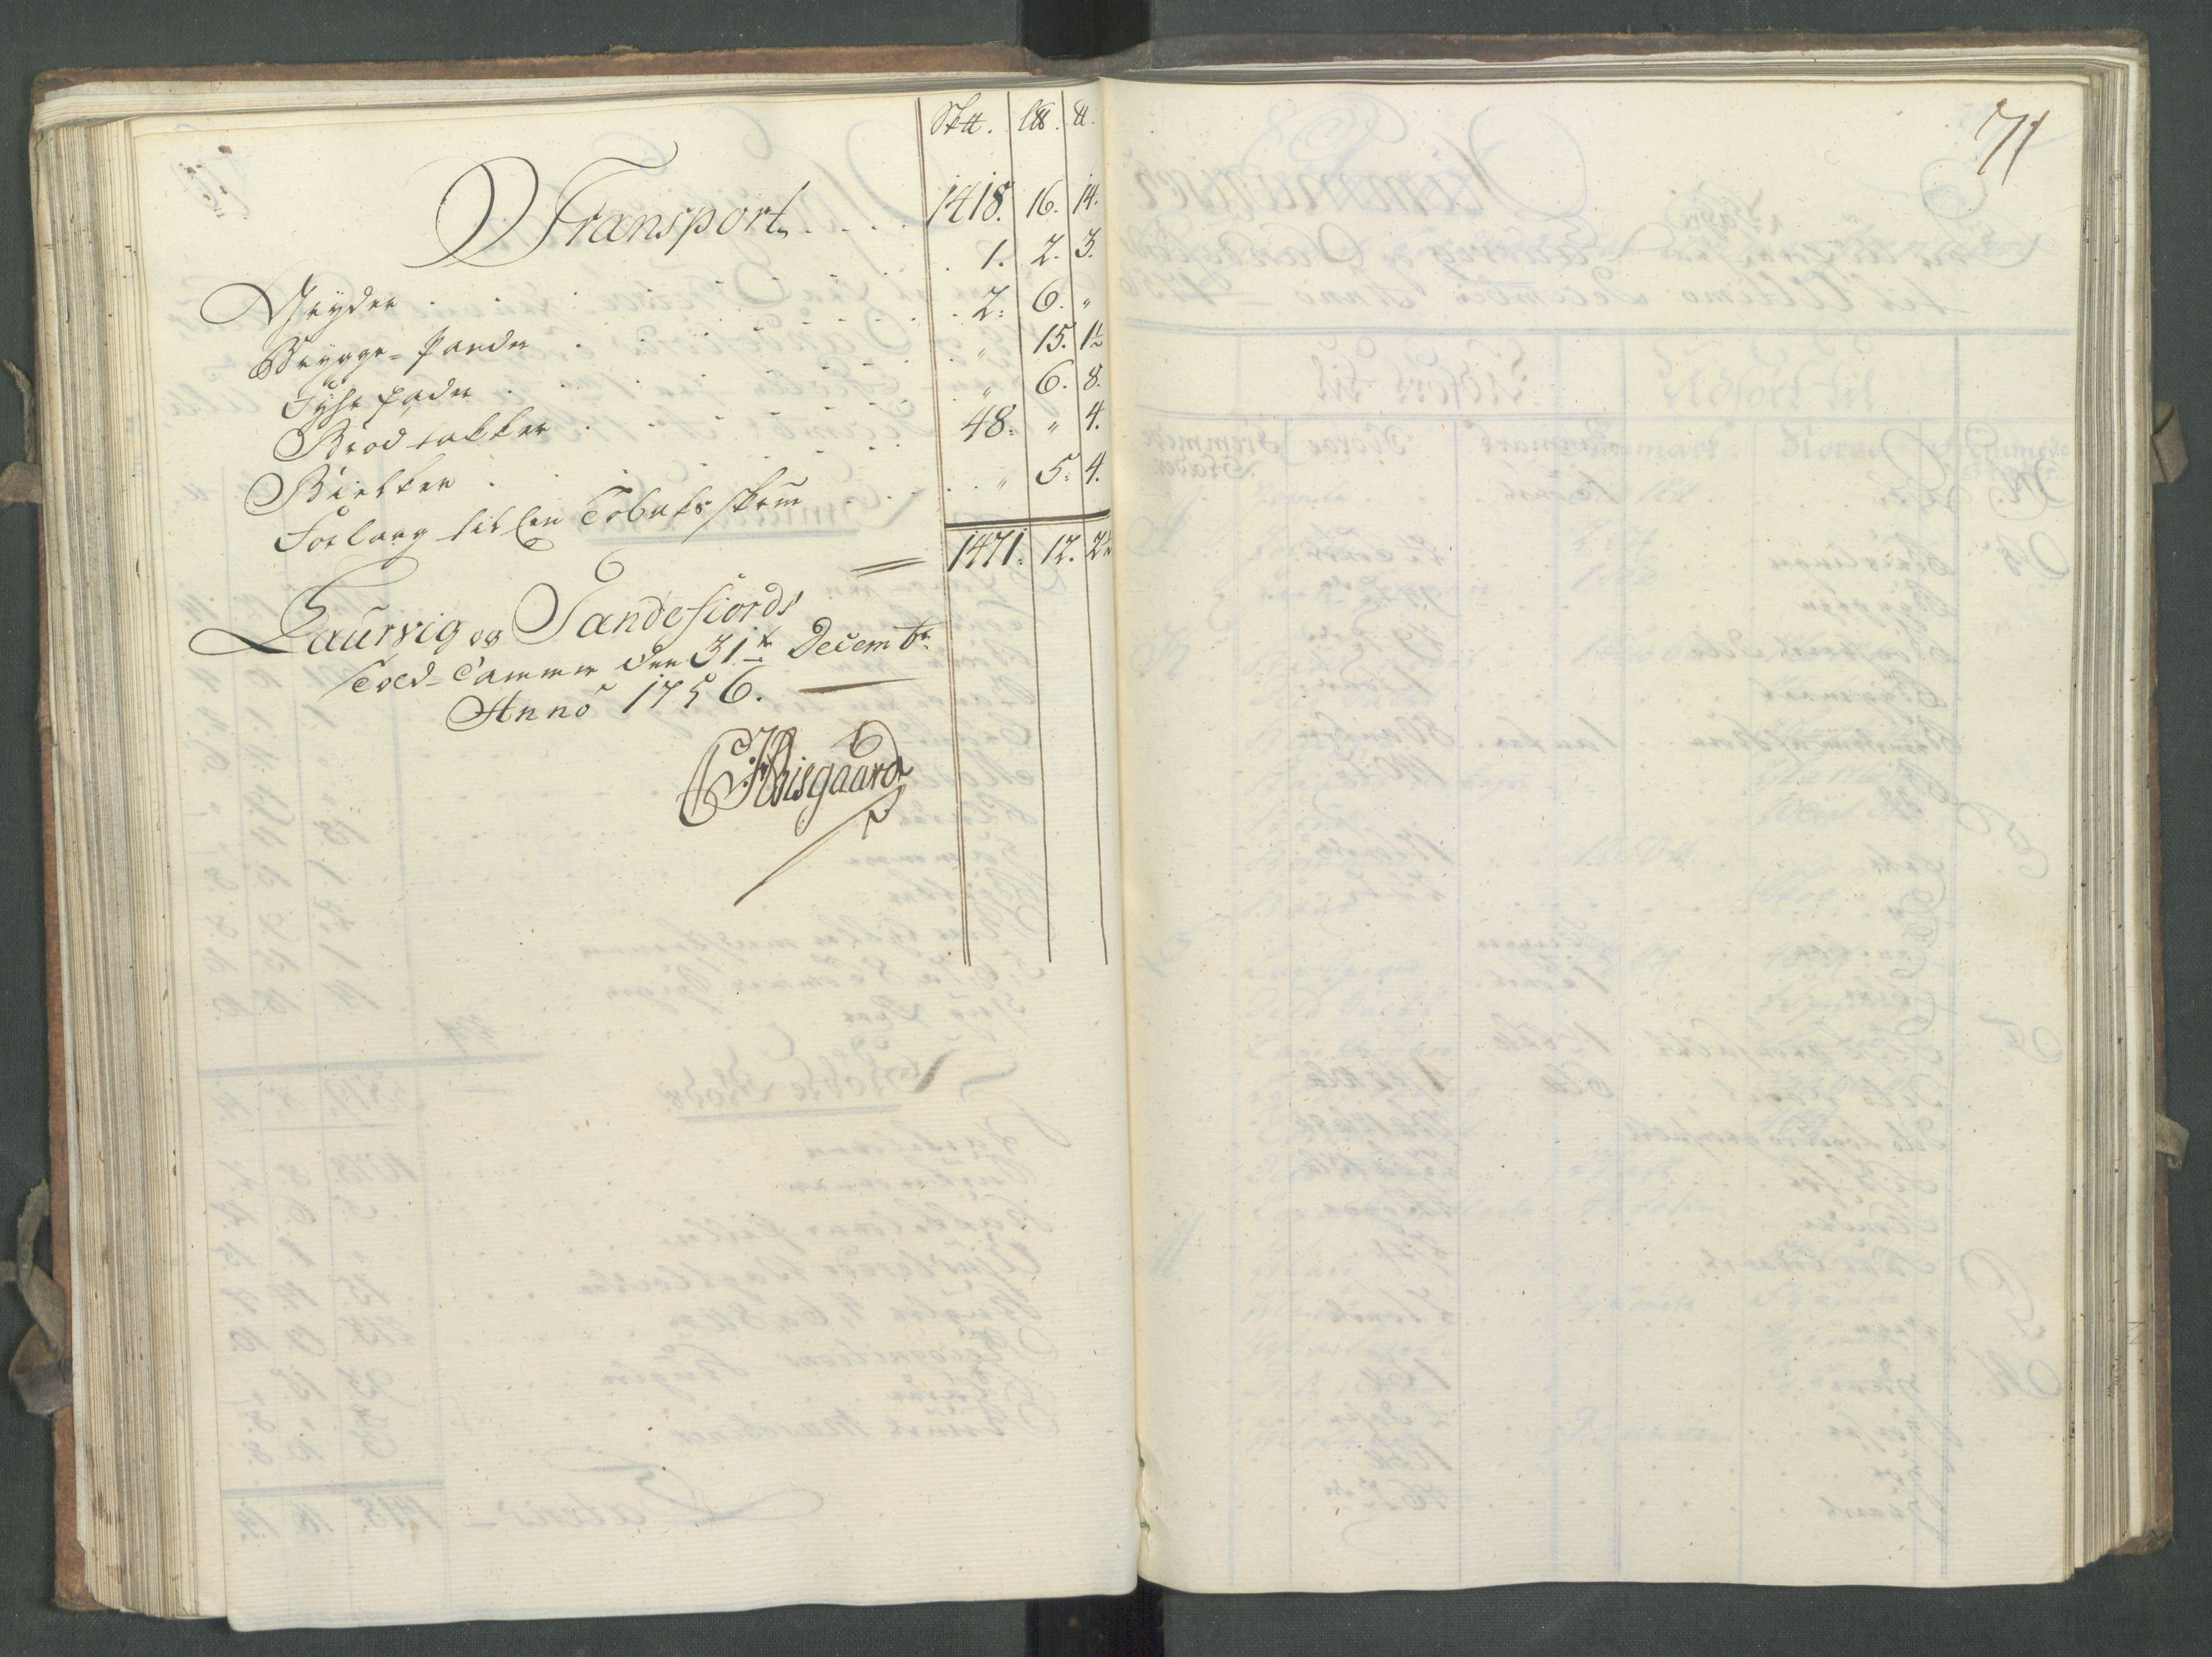 S℔. L℔. ℔.
Transport . . . . 1418. 16. 14.
Gryder . . . . 1. 2. 3.
Brygge-Pander . . . . 2. 6. "
Tyhr pader . . . . " 15. 1½
Brødtakker . . . . " 6. 8.
Bielker . . . . 48. " 4.
Forlang til en Tobaks skrue . . . . " 5. 4.
1471. 12. 2½
Laurvig og Sandefiords
Told-Cammer den 31te Decembr:
Anno 1756.
Wisgaard
71